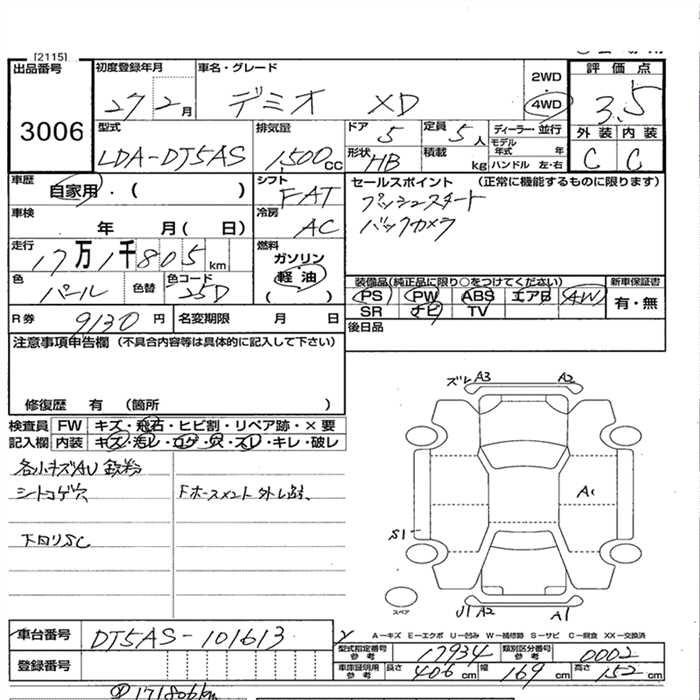 [2115]
出品番号 3006
初度登録年月 27 2月
車名・グレード デミオ XD
2WD
4WD
評価点 3.5
外装 内装
C C
型式 LDA-DJ5AS
排気量 1,500cc
ドア 5
定員 5人
形状 HB
積載 kg
ディーラー・並行
モデル年式 年
ハンドル 左・右
車歴 自家用・( )
シフト FAT
セールスポイント (正常に機能するものに限ります)
プッシュスタート
バックカメラ
車検 年 月( 日)
冷房 AC
走行 17万1千805km
燃料 ガソリン
軽油
( )
色 パール
色替
色コード 25D
装備品(純正品に限り○をつけてください)
PS PW ABS エアB AW
SR ナビ TV
新車保証書
有・無
R券 9130円
名変期限 月 日
後日品
注意事項申告欄 (不具合内容等は具体的に記入して下さい)
修復歴 有 (箇所 )
検査員 FW キズ・飛石・ヒビ割・リペア跡・×要
記入欄 内装 キズ・汚レ・コゲ・穴・スレ・キレ・破レ
各小キズAU 鉄粉
シートコゲ穴
下回りSC
ズレA3 A2
A1
S1
U1 A2 A1
スペア
車台番号 DJ5AS-101613
登録番号
A—キズ E—エクボ U—凹み W—補修跡 S—サビ C—腐食 XX—交換済
型式指定番号 参考 17934
類別区分番号 参考 0002
車庫証明用 参考 長さ 406cm 幅 169cm 高さ 152cm
171806km